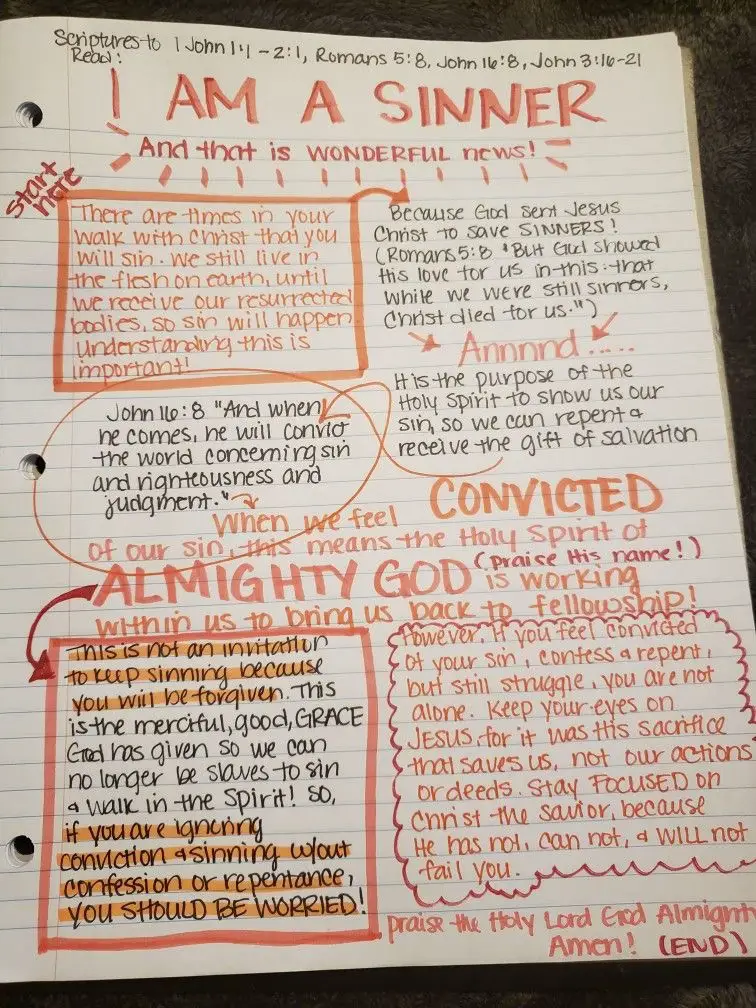 Scriptures to 1 John 1:1 - 2:1, Romans 5:8, John 16:8, John 3:16-21
Read:
I AM A SINNER
And that is WONDERFUL news!
start here
There are times in your
walk with Christ that you
will sin. We still live in
the flesh on earth, until
we receive our resurrected
bodies, so sin will happen.
Understanding this is
important!
Because God sent Jesus
Christ to save SINNERS!
(Romans 5:8 "But God showed
His love for us in this: that
while we were still sinners,
Christ died for us.")
Annnnd.....
It is the purpose of the
Holy Spirit to show us our
sin, so we can repent &
receive the gift of salvation
John 16:8 "And when
he comes, he will convict
the world concerning sin
and righteousness and
judgment."
When we feel CONVICTED
of our sin, this means the Holy Spirit of
ALMIGHTY GOD (praise His name!) is working
within us to bring us back to fellowship!
This is not an invitation
to keep sinning because
you will be forgiven. This
is the merciful, good, GRACE
God has given so we can
no longer be slaves to sin
& walk in the Spirit! So,
if you are ignoring
conviction & sinning w/out
confession or repentance,
YOU SHOULD BE WORRIED!
However, if you feel convicted
of your sin, confess & repent,
but still struggle, you are not
alone. Keep your eyes on
JESUS, for it was His sacrifice
that saves us, not our actions
or deeds. Stay FOCUSED on
Christ the savior, because
He has not, can not, & WILL not
fail you.
praise the Holy Lord God Almighty
Amen! (END)